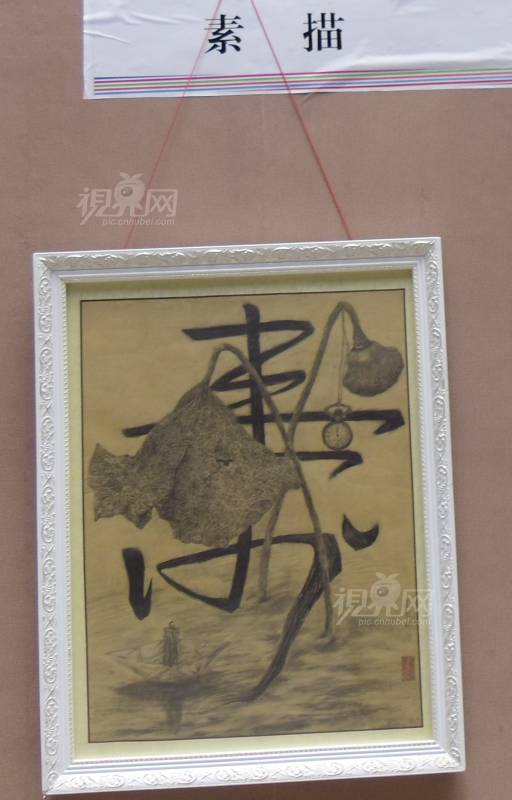 素 描
視界网
pic.cnhubei.com
視界网
pic.cnhubei.com